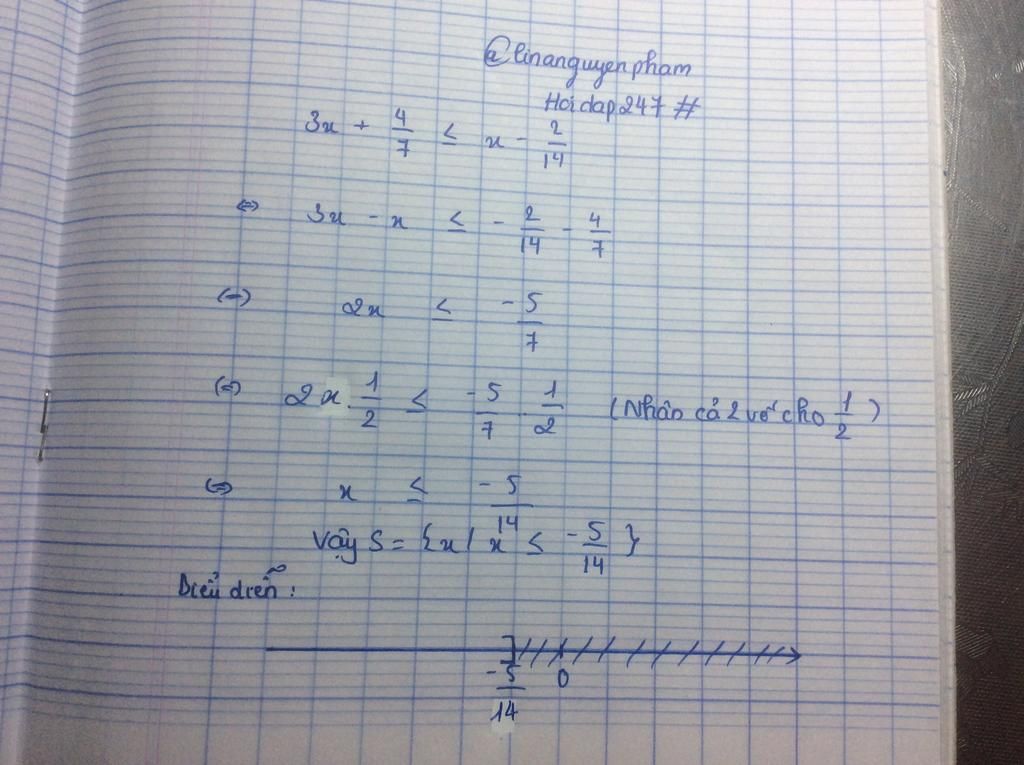 @linanguyenpham
Hoidap247 #
3x + 4/7 ≤ x - 2/14
⇔ 3x - x ≤ - 2/14 - 4/7
⇔ 2x ≤ -5/7
⇔ 2x . 1/2 ≤ -5/7 . 1/2 (Nhân cả 2 vế cho 1/2)
⇔ x ≤ -5/14
Vậy S = {x / x ≤ -5/14}
Biểu diễn :
-5/14 0